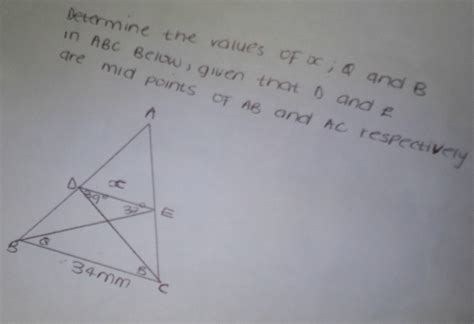 Determine the values of x; Q and B
in ABC Below, given that D and E
are mid points of AB and AC respectively
A
D
x
39°
32°
E
B
Q
B
34mm
C